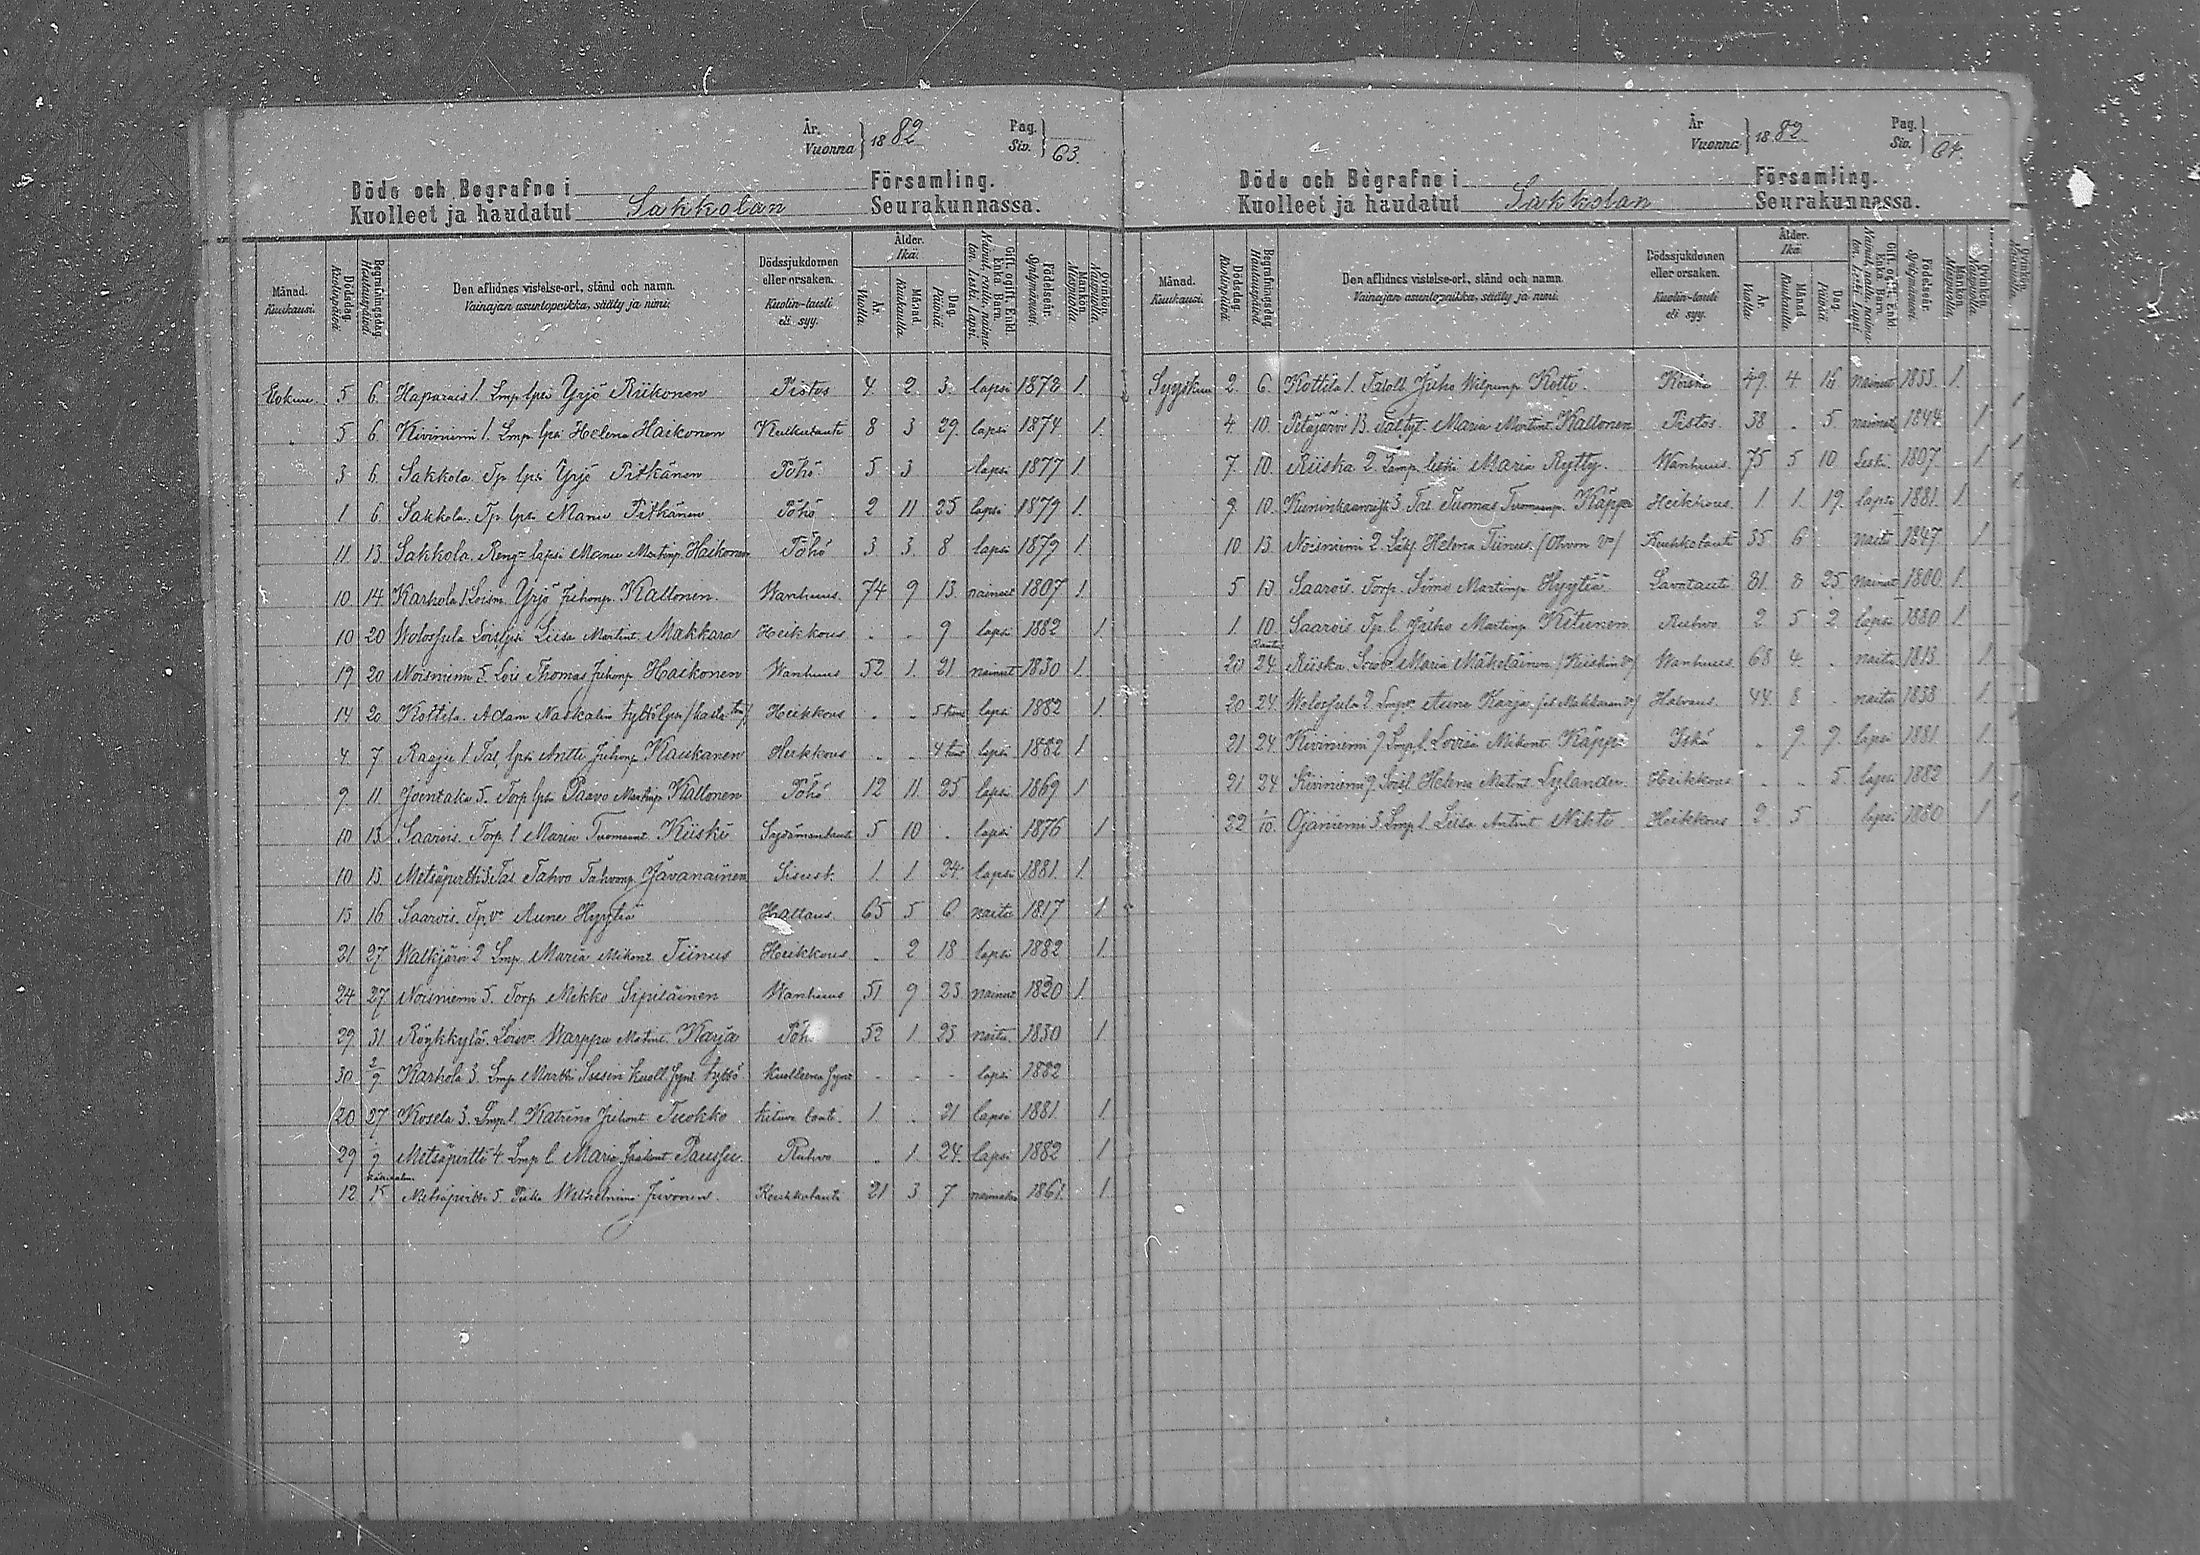 År. Vuonna } 1882 Pag. Siv. } 63.
Döde och Begrafne i Församling.
Kuolleet ja haudatut Sakkolan Seurakunnassa.
Månad. Kuukausi. Dödsdag. Kuolinpäivä. Begrafningsdag. Hautauspäivä. Den aflidnes vistelse-ort, stånd och namn. Vainajan asuntopaikka, sääty ja nimi. Dödssjukdomen eller orsaken. Kuolin-tauti eli syy. Ålder. Ikä. År. Vuotta. Månad. Kuukautta. Dag. Päivää. Gift, ogift, Enkl. Enka, Barn. Nainut, naitu, naimaton, Leski, Lapsi. Födelseår. Syntymävuosi. Mankön. Miespuolia. Qvinkön. Vaimopuolia.
Eokuu. 5 6. Haparais 1. Lmp. lpsi Yrjö Riikonen Pistos 4. 2 3. lapsi 1872 1.
5 6. Kiviniemi 1. Lmp. lpsi Helena Haikonen Kulkutauti 8 3 29. lapsi 1874 1.
3 6. Sakkola. Tp. lpsi Yrjö Pitkänen Pöhö 5 3 lapsi 1877 1.
1 6. Sakkola. Tp. lpsi Manu Pitkänen Pöhö 2 11 25 lapsi 1879 1.
11 13. Sakkola. Reng. lapsi Manu Martinp. Haikonen Pöhö 3. 3. 8 lapsi 1879 1.
10 14 Karhola 1. Loism. Yrjö Juhonp. Kallonen. Wanhuus. 74 9 13. nainut 1807 1.
10 20 Wolosjula Lois lpsi Liisa Martint. Makkara Heikkous . . 9 lapsi 1882 1.
19 20 Noisniemi 5. Lois Thomas Juhonp. Haikonen Wanhuus 52 1. 21 nainut 1830 1.
14 20 Kottila. Adam Naskalin tyttölpsi Heikkous . . 5 lapsi 1882 1.
4. 7 Raaju 1. Tal. lpsi Antti Juhonp. Kaukanen Heikkous . . 4 lapsi 1882 1.
9. 11. Joentaka 5. Torp. lpsi Paavo Martinp. Kallonen Pöhö 12 11 25 lapsi 1869 1.
10 13. Saarois. Torp. l. Maria Tuomaant. Kiiski Sydämentauti 5 10 . lapsi 1876 1.
10 13. Metsäpirtti 3. Tal. Tahvo Tahvonp. Jävanäinen Sisust. 1. 1 24. lapsi 1881 1.
13 16 Saarois. Tp. vo Anna Hyytiä Hallaus 65 5 6 naitu 1817 1.
21 27 Walkjärvi 2 Lmp. Maria Mikont. Tiinus Heikkous . 2 18 lapsi 1882 1.
24 27 Noisniemi 5. Torp. Mikko Sipiläinen Wanhuus 51 9 23 nainut 1820 1.
29 31 Röykkylä. Loisv. Warppu Matint. Karja Pöhö 52 1 23 naitu. 1830 1.
30 2/9 Karhola 3. Lmp. Martti Susin kuoll. synt. tyttö Kuolleena synt. - - - lapsi 1882
20 27 Kosela 3. Lmp. l. Katrina Juhont. Tuokko kitum. tauti. 1. . 21 lapsi 1881. 1.
29 Metsäpirtti 4. Lmp. l. Maria Paussu. Ruhvo . 1. 24. lapsi 1882 1
12 15 Metsäpirtti 5. Piika Wilhelmina Juvonen. Keuhkotauti 21 3 7 naimaton 1861. 1.
År Vuonna } 1882. Pag. Siv. } 64.
Döde och Begrafne i Församling.
Kuolleet ja haudatut Sakkolan Seurakunnassa.
Månad. Kuukausi. Dödsdag. Kuolinpäivä. Begrafningsdag. Hautauspäivä. Den aflidnes vistelse-ort, stånd och namn. Vainajan asuntopaikka, sääty ja nimi. Dödssjukdomen eller orsaken. Kuolin-tauti eli syy. Ålder. Ikä. År. Vuotta. Månad. Kuukautta. Dag. Päivää. Gift, ogift, Enkl. Enka, Barn. Nainut, naitu, naimaton, Leski, Lapsi. Födelseår. Syntymävuosi. Mankön. Miespuolia. Qvinkön. Vaimopuolia.
Syyskuu 2. 6. Kottila 1. Juho Wilpunp. Kotti. 49. 4. 16 nainut 1833. 1.
4. 10. Petäjärvi 13. Tal. tyt. Maria Martint. Kallonen Pistos. 38 . 5. naimat. 1844 1
7. 10. Riiska 2. Lamp. leski Maria Rytty. Wanhuus. 75 5 10 Leski. 1807. 1
9. 10. 3. Tal. Tuomas Tuomaanp. Käppi Heikkous. 1. 1. 19. lapsi 1881. 1.
10. 13. Noisniemi 2. Helena Tiinus. Keuhkotaut. 35 6 naitu 1847 1
5 13 Saarois. Torp. Simo Martinp. Hyytiä. Lavantauti 81. 8 25 nainut 1800 1.
1. 10. Saarois Tp. l. Juho Martinp. Ketunen Ruhvo 2 5 2 lapsi 1880 1.
Rautu
20 24. Riiska. Loisv. Maria Mäkeläinen Wanhuus 68 4. . naitu 1813. 1.
20 24. Wolosjula 2. Lmpv. Anna Karja Halvaus. 44. 8 . naitu 1838 1.
21. 24. Kiviniemi 9. Lmp. l. Loviisa Mikont. Käppi Iskö . 9. 9. lapsi 1881. 1
21 24 Kiviniemi 9. Helena Matint. Sylander. Heikkous . . 5. lapsi 1882 1.
22 1/10. Ojaniemi 3. Lmp. l. Liisa Antint. Nikte Heikkous 2 5 lapsi 1880 1